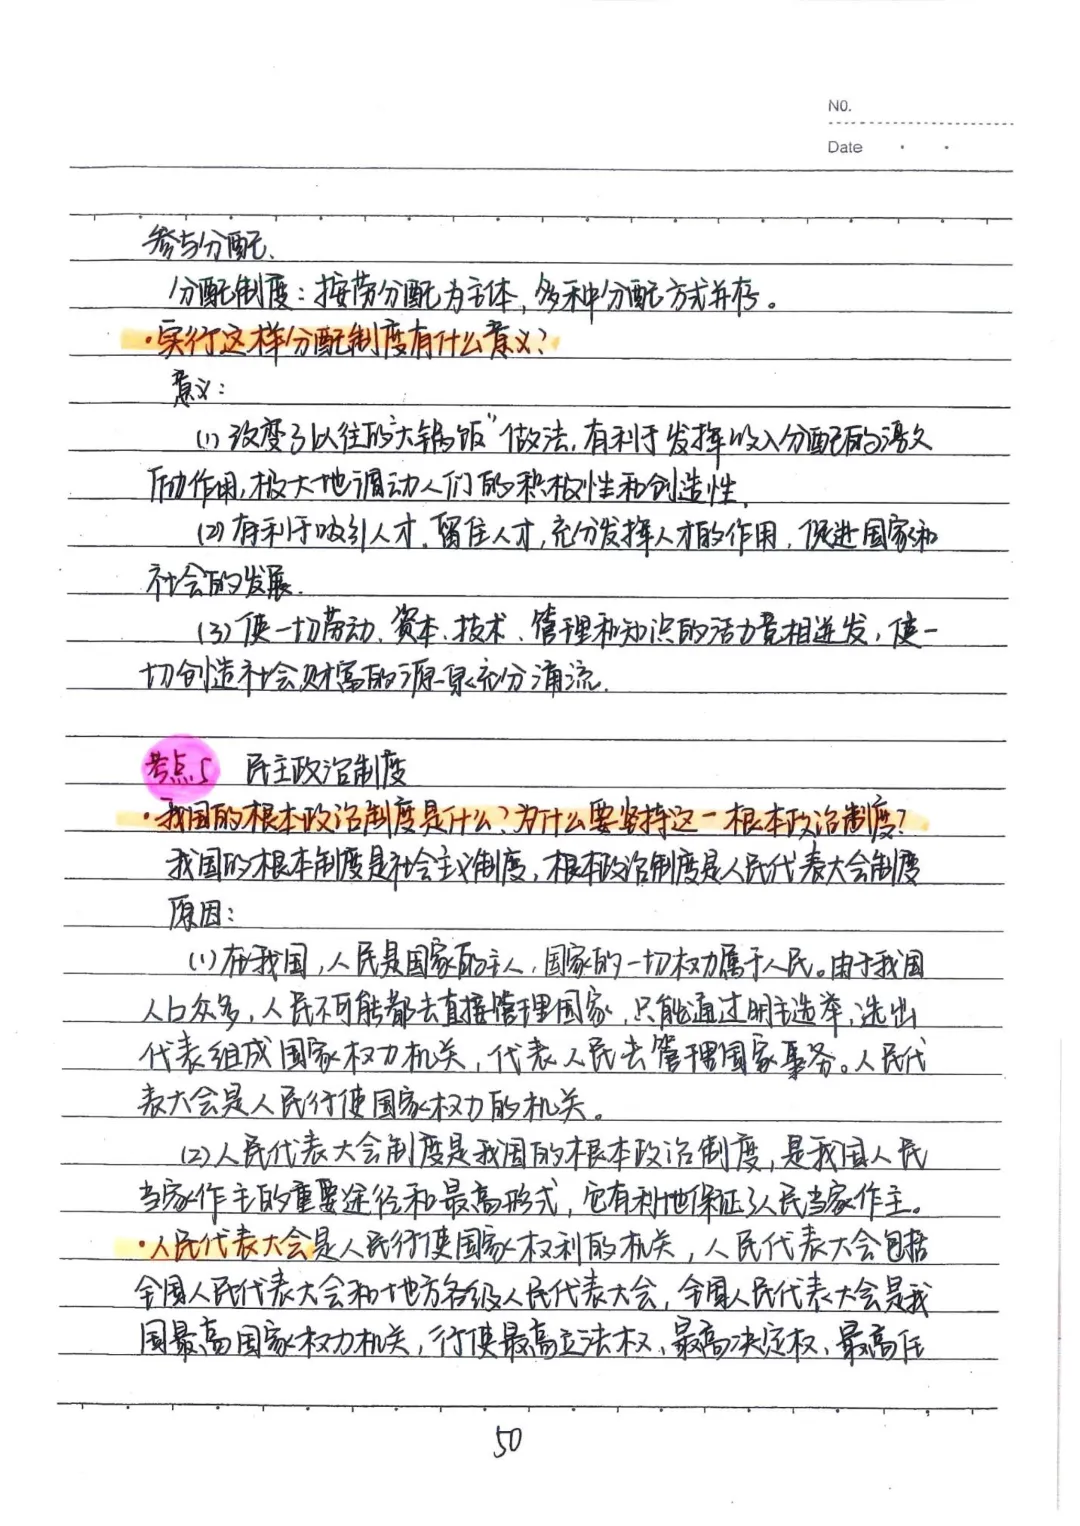 NO.
Date
参与分配.
分配制度：按劳分配为主体，多种分配方式并存。
·实行这样分配制度有什么意义？
意义：
(1) 改变了以往的“大锅饭”做法，有利于发挥收入分配的激
励作用，极大地调动人们的积极性和创造性.
(2) 有利于吸引人才、留住人才，充分发挥人才的作用，促进国家和
社会的发展.
(3) 使一切劳动、资本、技术、管理和知识的活力竞相迸发，使一
切创造社会财富的源泉充分涌流.
考点5 民主政治制度
·我国的根本政治制度是什么？为什么要坚持这一根本政治制度？
我国的根本制度是社会主义制度，根本政治制度是人民代表大会制度
原因：
(1) 在我国，人民是国家的主人，国家的一切权力属于人民。由于我国
人口众多，人民不可能都去直接管理国家，只能通过民主选举，选出
代表组成国家权力机关，代表人民去管理国家事务。人民代
表大会是人民行使国家权力的机关。
(2) 人民代表大会制度是我国的根本政治制度，是我国人民
当家作主的重要途径和最高形式，它有利地保证了人民当家作主。
·人民代表大会是人民行使国家权利的机关，人民代表大会包括
全国人民代表大会和地方各级人民代表大会，全国人民代表大会是我
国最高国家权力机关，行使最高立法权、最高决定权、最高任
50